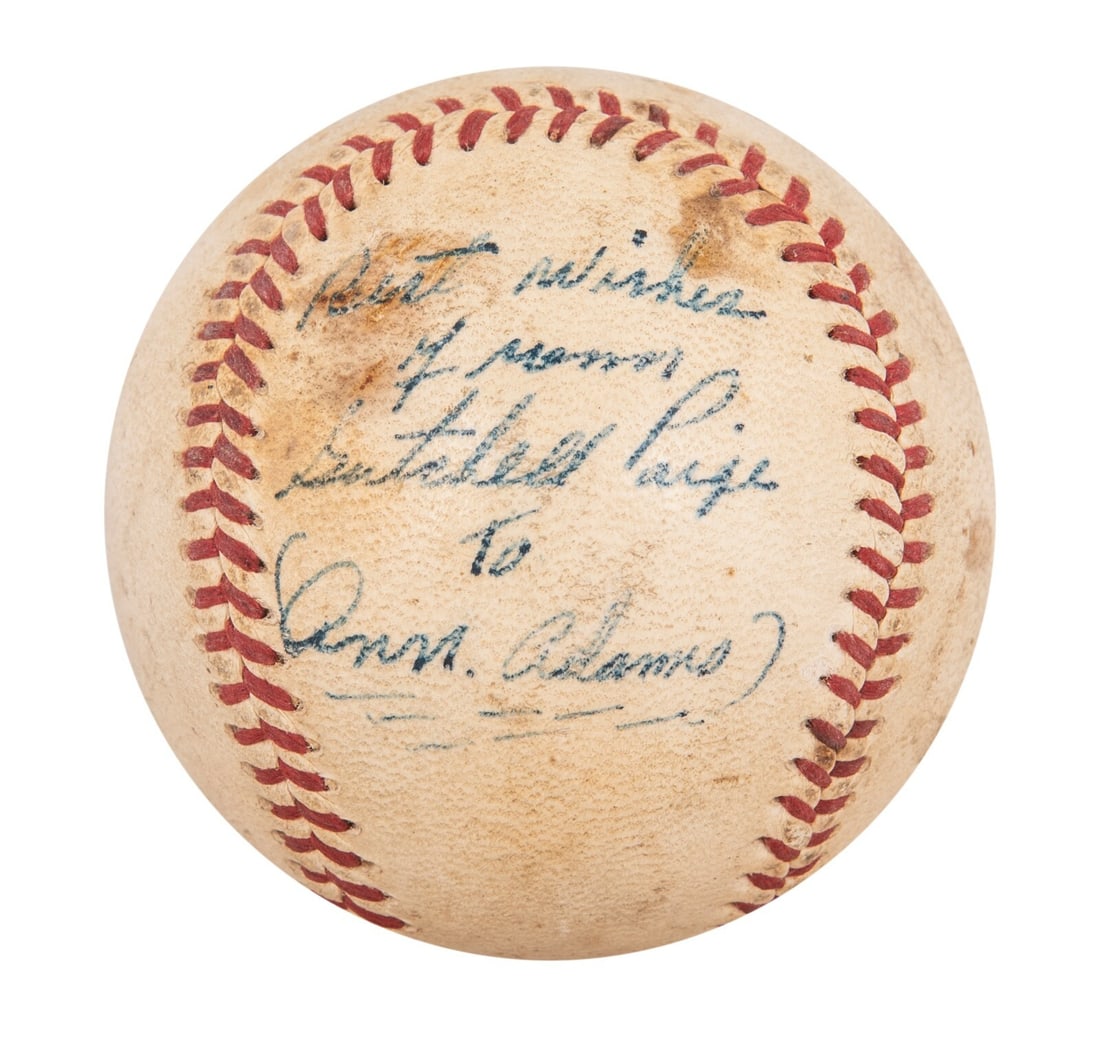 Best wishes
from
Satchell Paige
To
(Ann. Adams)